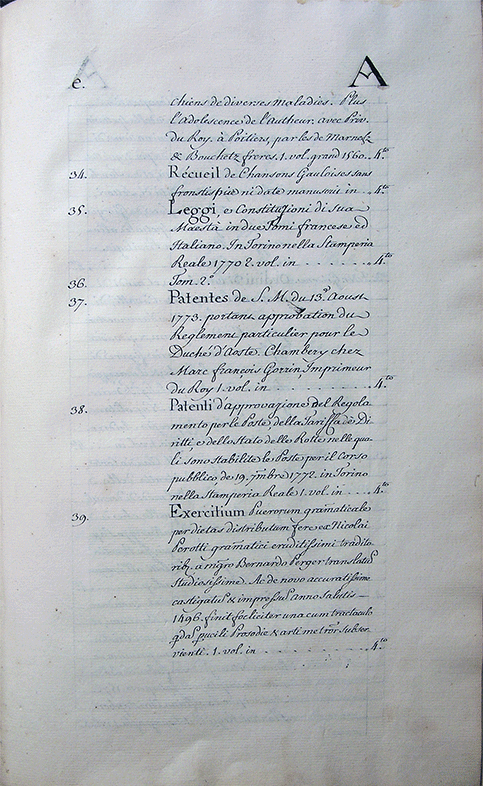 e. A
chiens de diverses maladies. Plus
l'adolescence de l'autheur, avec Priv.
du Roy. à Poitiers, par les de Marnefz
& Bouchetz freres. 1. vol. grand 1560. 4.to
34. Récueil de Chansons Gauloises sans
frontispice ni date manuscrit in . . 4.to
35. Leggi, e Constituzioni di Sua
Maestà in due Tomi francese ed
Italiano. In Torino nella Stamperia
Reale 1770 2. vol. in . . . . . . . . . 4.to
36. Tom. 2.o
37. Patentes de S. M. du 13.e Aoust
1773. portant approbation du
Reglement particulier pour le
Duché d'Aoste. Chambery chez
Marc françois Gorrin, Imprimeur
du Roy 1. vol. in . . . . . . . . . . 4.to
38. Patenti d'approvazione del Regola
mento per le Poste della Tariffa de Di
ritti, e dello Stato delle Rotte nelle qua
li sono stabilite le Poste per il Corso
pubblico, de 19. 7mbre 1772. in Torino
nella Stamperia Reale 1. vol. in . . . 4.to
39. Exercitium Puerorum gramaticale
per dietas distributum fere ex Nicolai
Perotti gramatici eruditissimi tradito
rib9. a mgro Bernardo Perger translatu9
Studiosissime. Ac de novo accuratissime
castigatu9 & impressu9 anno Salutis
1496. finit foeliciter una cum tractatulo
qda9 pucili Prosodie & arti metror9 subser
vienti. 1. vol. in . . . . . . . . . . . 4.to